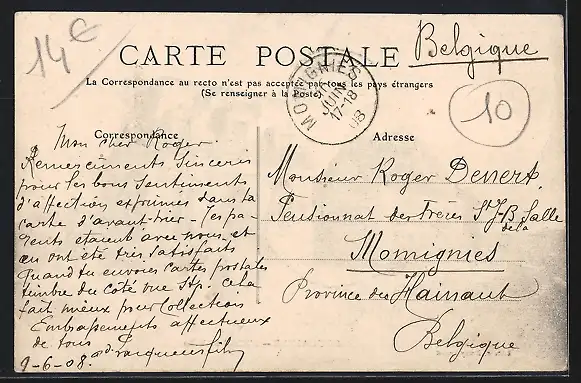 14€
CARTE POSTALE
Belgique
La Correspondance au recto n'est pas acceptée par tous les pays étrangers
(Se renseigner à la Poste)
MOMIGNIES
JUIN
17-18
08
10
Correspondance
Adresse
Mon cher Roger
Remerciments sincères
pour les bons sentiments
d'affection exprimés dans ta
carte d'avant-hier - Tes pa-
rents étaient avec nous et
en ont été très satisfaits
Quand tu envoies cartes postales
timbre du côté vue stp. cela
fait mieux pour Collection
Embrassements affectueux
de tous
9-6-08.
Monsieur Roger Denert.
Pensionnat des Frères St J-B de la Salle
Momignies
Province du Hainaut
Belgique